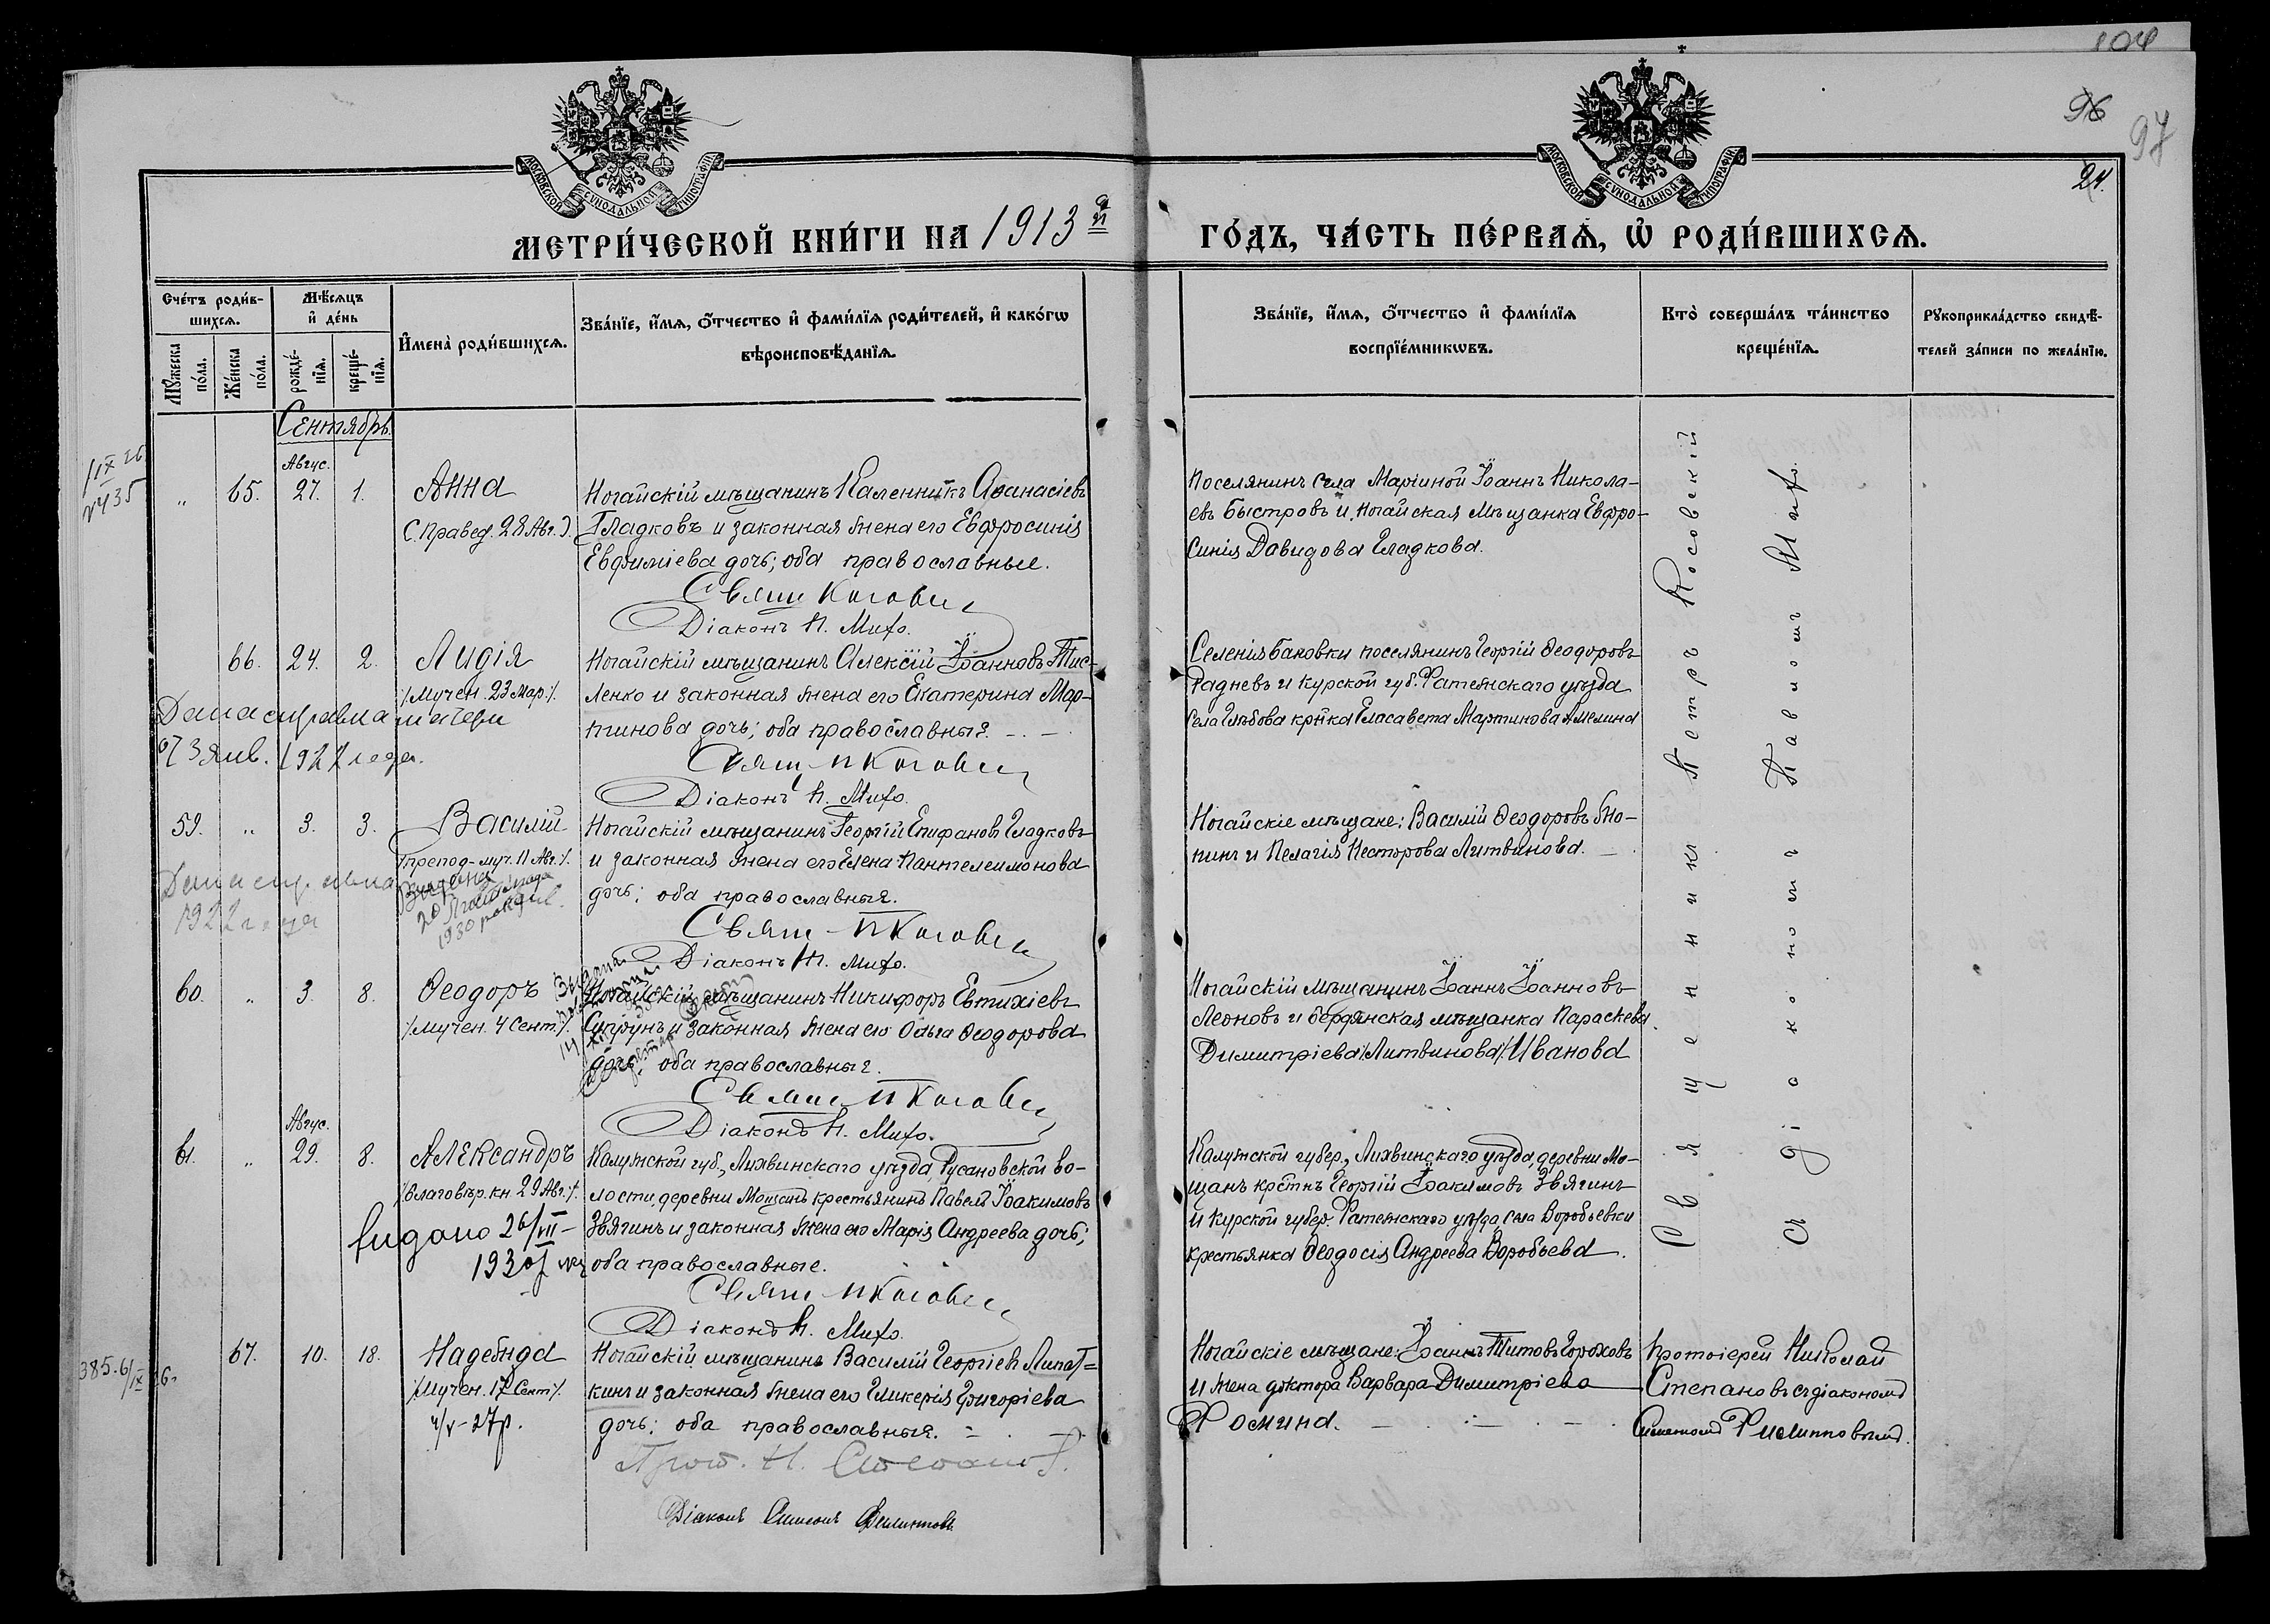 104
96
97
24.
МОСКОВСКОЙ СѴНОДАЛЬНОЙ ТИПОГРАФІИ
МОСКОВСКОЙ СѴНОДАЛЬНОЙ ТИПОГРАФІИ
МЕТРИ́ЧЕСКОЙ КНИ́ГИ НА 1913 й
ГО́ДЪ, ЧА́СТЬ ПЕ́РВАѦ, Ѡ҆ РОДИ́ВШИХСѦ.
Сче́тъ роди́в-
шихсѧ.
Мѣ́сѧцъ
и҆ де́нь
Мꙋ́жеска
по́ла.
Же́нска
по́ла.
рожде́-
нїѧ.
креще́-
нїѧ.
И҆мена̀ роди́вшихсѧ.
Зва́нїе, и҆́мѧ, ѻ҆́тчество и҆ фами́лїѧ роди́телей, и҆ како́гѡ
вѣроисповѣ́данїѧ.
Зва́нїе, и҆́мѧ, ѻ҆́тчество и҆ фами́лїѧ
воспрїе́мникѡвъ.
Кто̀ соверша́лъ та́инство
креще́нїѧ.
Рꙋкоприкла́дство свидѣ́-
телей за́писи по жела́нїю.
Сентябрь.
Авгус.
„ 65. 27. 1. Анна
(Правед. 28 Авг.).
Ногайскій мѣщанинъ Каленникъ Аѳанасіевъ
Гладковъ и законная жена его Евфросинія
Евфиміева дочь; оба православные.
Діаконъ П. Миф.
Поселянинъ села Маріиной Іоаннъ Никола-
евъ Быстровъ и Ногайская мѣщанка Евфро-
синія Давидова Гладкова.
Священникъ Петръ Косовскій
съ діакономъ Павломъ Миф.
66. 24. 2. Лидія
/Мучен. 23 Мар./.
Дана справка матери
3 янв. 1922 года.
Ногайскій мѣщанинъ Алексій Іоанновъ Тис-
ленко и законная жена его Екатерина Мар-
тинова дочь; оба православныя.
Діаконъ П. Миф.
Селенія Бановки поселянинъ Георгій Ѳеодоровъ
Радневъ и Курской губ. Фатежскаго уѣзда
села Глѣбова кр҃нка Елисавета Мартинова Амелина
59. „ 3. 3. Василій
/препод-муч. 11 Авг./.
Дана справка
1922 года
Ногайскій мѣщанинъ Георгій Епифановъ Гладковъ
и законная жена его Елена Пантелеимонова
дочь; оба православныя.
Діаконъ П. Миф.
Ногайскіе мѣщане: Василій Ѳеодоровъ
и Пелагія Несторова Литвинова.
60. „ 3. 8. Ѳеодоръ
/мучен. 4 Сент./.
Ногайскій мѣщанинъ Никифоръ Евтихіевъ
Супрунъ и законная жена его Ольга Ѳеодорова
дочь; оба православныя.
Діаконъ П. Миф.
Ногайскій мѣщанинъ Іоаннъ Іоанновъ
Леоновъ и бердянская мѣщанка Параскева
Димитріева /Литвинова/ Иванова
Авгус.
61. „ 29. 8. Александръ
/Благовѣр. кн 29 Авг./.
Видано 26/III-
1930 р
Калужской губ., Лихвинскаго уѣзда, Русановской во-
лости, деревни Мощанъ крестьянинъ Павелъ Іоакимовъ
Звягинъ и законная жена его Марія Андреева дочь;
оба православные.
Діаконъ П. Миф.
Калужской губер., Лихвинскаго уѣзда, деревни Мо-
щанъ крстнъ Георгій Іоакимовъ Звягинъ
и Курской губер. Фатежскаго уѣзда, села Воробьевки
крестьянка Ѳеодосія Андреева Воробьева.
67. 10. 18. Надежда
/Мучен. 17 Сент/.
4/V-27р.
Ногайскій мѣщанинъ Василій Георгіевъ Липат-
кинъ и законная жена его Гликерія Григоріева
дочь; оба православныя.
Прот. Н. Степановъ.
Діаконъ Симеонъ Филипповъ
Ногайскіе мѣщане: Іоаннъ Титовъ Гороховъ
и жена доктора Варвара Димитріева
Фомина.
Протоіерей Николай
Степановъ съ діакономъ
Симеономъ Филипповымъ.